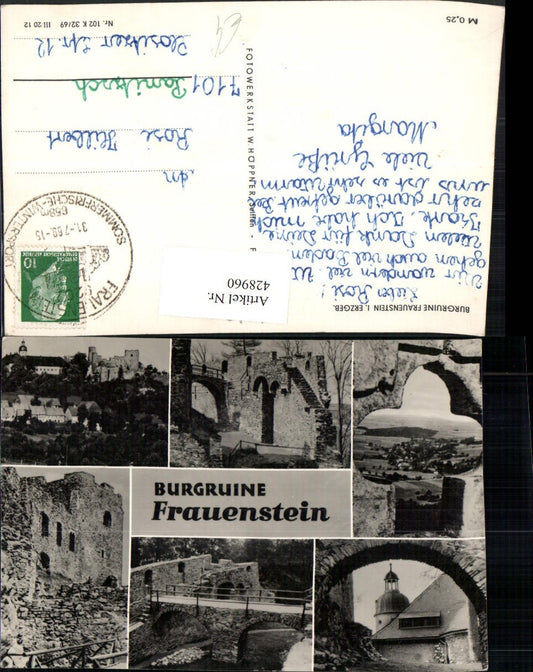 BURGRUINE FRAUENSTEIN I. ERZGEB.
Liebe Rosi!
Wir wandern viel.
gehen auch viel Baden.
Vielen Dank für Deine
Karte. Ich habe mich
sehr darüber gefreut. Bei
uns ist es sehr warm
Viele Grüße
Margita
FOTOWERKSTATT W HOPPNER
SOMMERFRISCHE-WINTERSPORT
31.-7.69-15
10
An
Rosi Hilbert
7101
Nr. 102 K 32/69 III 20 12
M 0,25
Artikel Nr.
428960
BURGRUINE
Frauenstein